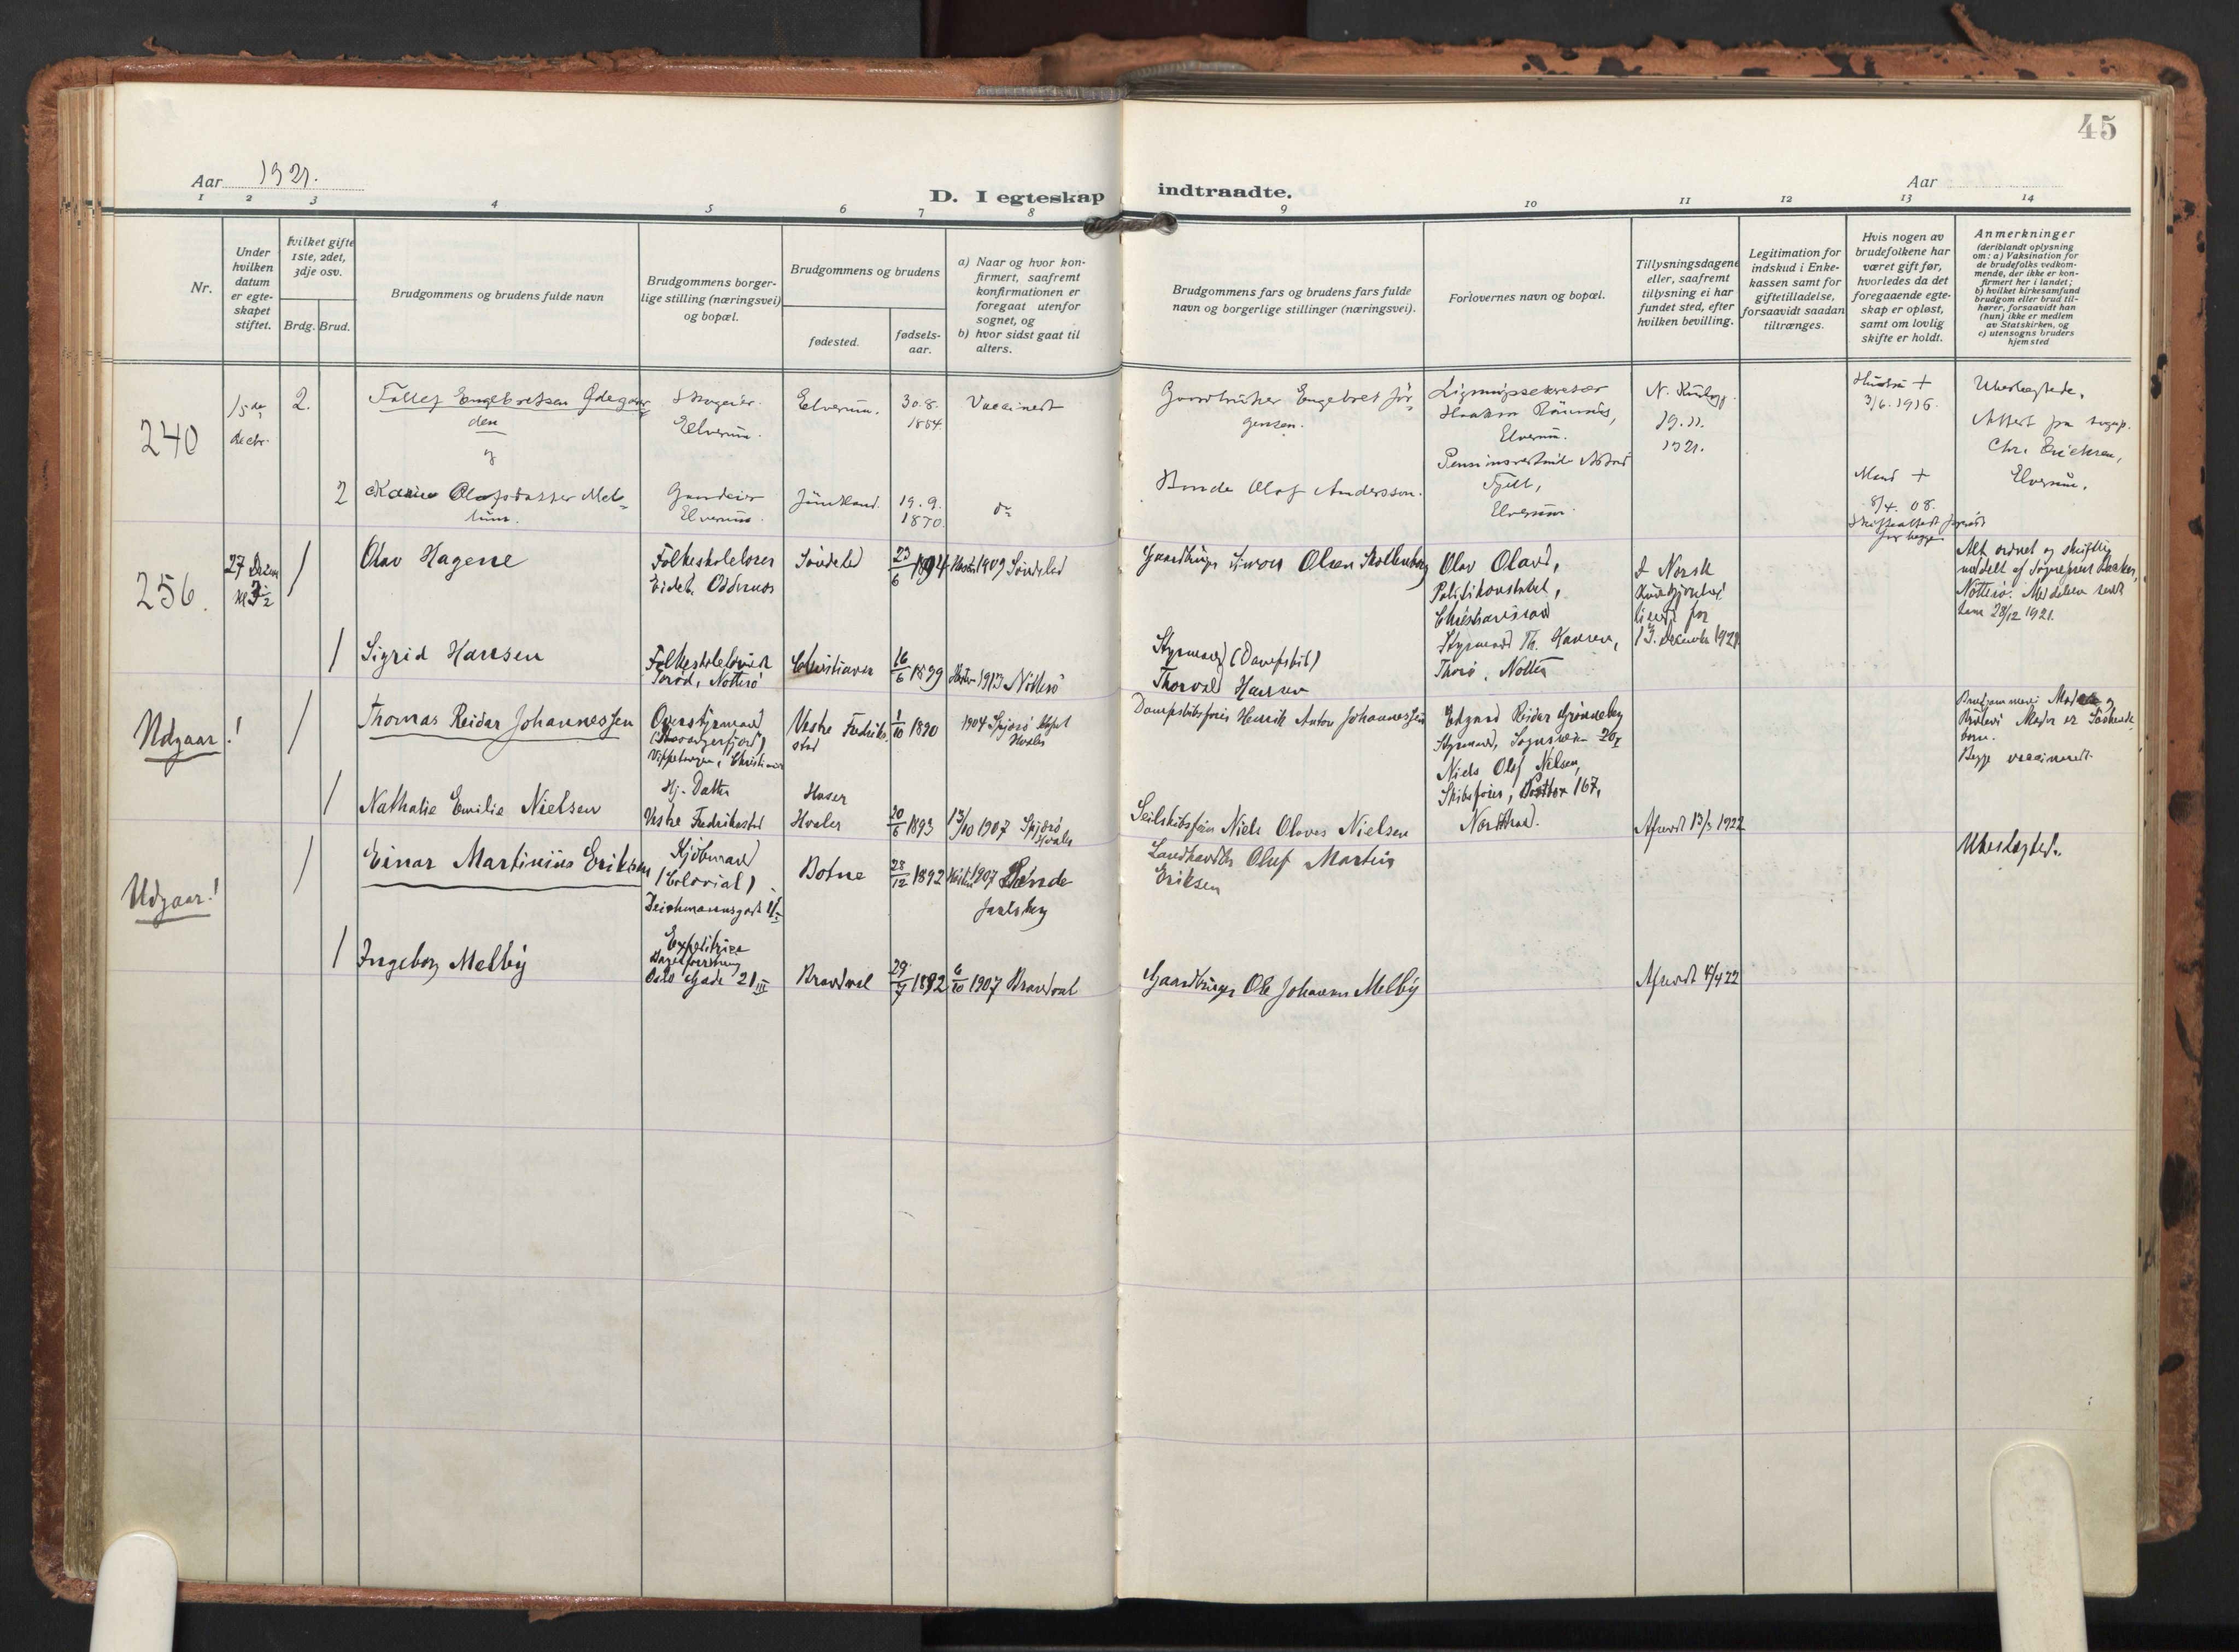 45
Aar 1921.
D. I egteskap indtraadte.
Aar
1 2 3 4 5 6 7 8 9 10 11 12 13 14
Nr.
Under
hvilken
datum
er egte-
skapet
stiftet.
Hvilket gifte
1ste, 2det,
3dje osv.
Brdg. Brud.
Brudgommens og brudens fulde navn
Brudgommens borger-
lige stilling (næringsvei)
og bopæl.
Brudgommens og brudens
fødested.
fødsels-
aar.
a) Naar og hvor kon-
firmert, saafremt
konfirmationen er
foregaat utenfor
sognet, og
b) hvor sidst gaat til
alters.
Brudgommens fars og brudens fars fulde
navn og borgerlige stillinger (næringsvei).
Forlovernes navn og bopæl.
Tillysningsdagene
eller, saafremt
tillysning ei har
fundet sted, efter
hvilken bevilling.
Legitimation for
indskud i Enke-
kassen samt for
giftetilladelse,
forsaavidt saadan
tiltrænges.
Hvis nogen av
brudefolkene har
været gift før,
hvorledes da det
foregaaende egte-
skap er opløst,
samt om lovlig
skifte er holdt.
Anmerkninger
(deriblandt oplysning
om: a) Vaksination for
de brudefolks vedkom-
mende, der ikke er kon-
firmert her i landet;
b) hvilket kirkesamfund
brudgom eller brud til-
hører, forsaavidt han
(hun) ikke er medlem
av Statskirken, og
c) utensogns bruders
hjemsted
240
15de
decbr.
2.
Tollef Engebretsen Ødegaar-
den
og
Skogeier.
Elverum.
Elverum.
30.8.
1854.
Vaccinert
Gaardbruker Engebret Jør-
gensen.
Ligningssekretær
Haakon
Elverum.
19.11.
1921.
Hustru +
3/6.1916.
Ubeslegtede.
Attest fra sogep.
Chr. Erichsen,
Elverum.
2
Karen Olafsdatter Mel-
lum.
Gardeier
Elverum.
Jämtland.
19.9.
1870.
do
Bonde Olaf Andersson.
Fjeld,
Elverum.
Mand +
8/4. 08.
for begge
256.
27 Dcbr
1
Olav Hagene
Folkeskolelærer
Eidet, Oddernes
Søndeled
23/6 1894
Høsten 1909 Søndeled
Gaardbruger Simon Olsen
Olav Olavd,
Politikonstabel,
Christianssand
I Norsk
for
13. December 1921
Alt ordnet og skriftlig
meddelt af Sogneprest
Nøtterø. Meddelelse sendt
ham 28/12 1921.
1
Sigrid Hansen
Folkeskolelærer
Torød, Nøtterø
Christiania
16/6 1899
Høsten 1913 Nøtterø
Styrmand (Dampskib)
Thorvald Hansen
Styrmand Th. Hansen,
Thorø, Nøtterø
Udgaar!
1
Thomas Reidar Johannessen
Overstyrmand
(Stavangerfjord)
Vippetangen, Christiania
Vestre Fredrik-
stad
1/10 1890
1904 Spjærø
Hvaler
Dampskibsfører Henrik Anton Johannessen
Edgard Reidar Grønneberg
Styrmand, Sognsveien 20
Niels Olaf Nilsen,
Skibsfører, Postbox 167,
Nordstrand.
Brudgommens Moder og
Brudens Moder er Søskende-
barn.
Begge vaccineret.
1
Nathalie Emilie Nielsen
Hj. Datter
Vestre Fredrikstad
Huser
Hvaler
20/6 1893
13/10 1907 Spjærø
Hvaler
Seilskibsfører Niels Olaves Nielsen
Afsendt 13/3 1922
Udgaar!
1
Einar Martinius Eriksen
Kjøbmand
(Colonial)
Deichmannsgade
Botne
28/12 1892
Høsten 1907 Sande
Jarlsberg
Landhandler Oluf Martin
Eriksen
Ubeslægtede.
1
Ingeborg Melby
Expeditrice
Oslo Gade 21 III
Brandval
29/7 1892
6/10 1907 Brandval
Gaardbruger Ole Johannes Melby
Afsendt 4/4 22